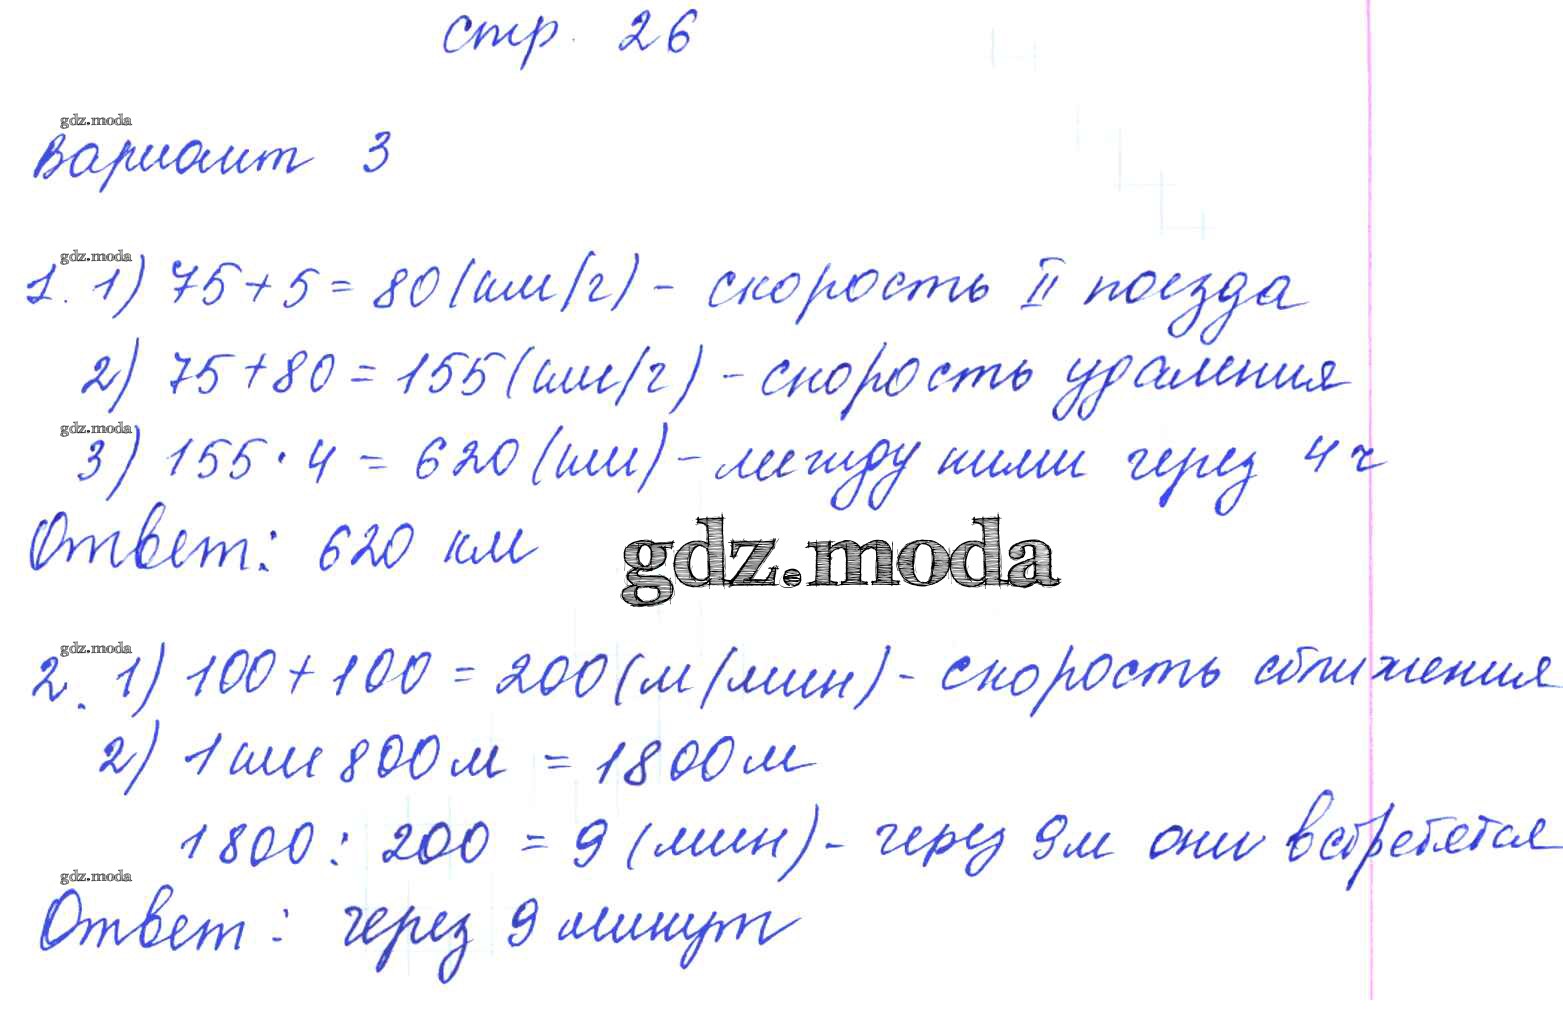 стр. 26
gdz.moda
Вариант 3
gdz.moda
1. 1) 75 + 5 = 80 (км/ч) - скорость II поезда
2) 75 + 80 = 155 (км/ч) - скорость удаления
gdz.moda
3) 155 · 4 = 620 (км) - между ними через 4 ч
Ответ: 620 км
gdz.moda
gdz.moda
2. 1) 100 + 100 = 200 (м/мин) - скорость сближения
2) 1 км 800 м = 1800 м
1800 : 200 = 9 (мин) - через 9 м они встретятся
gdz.moda
Ответ: через 9 минут